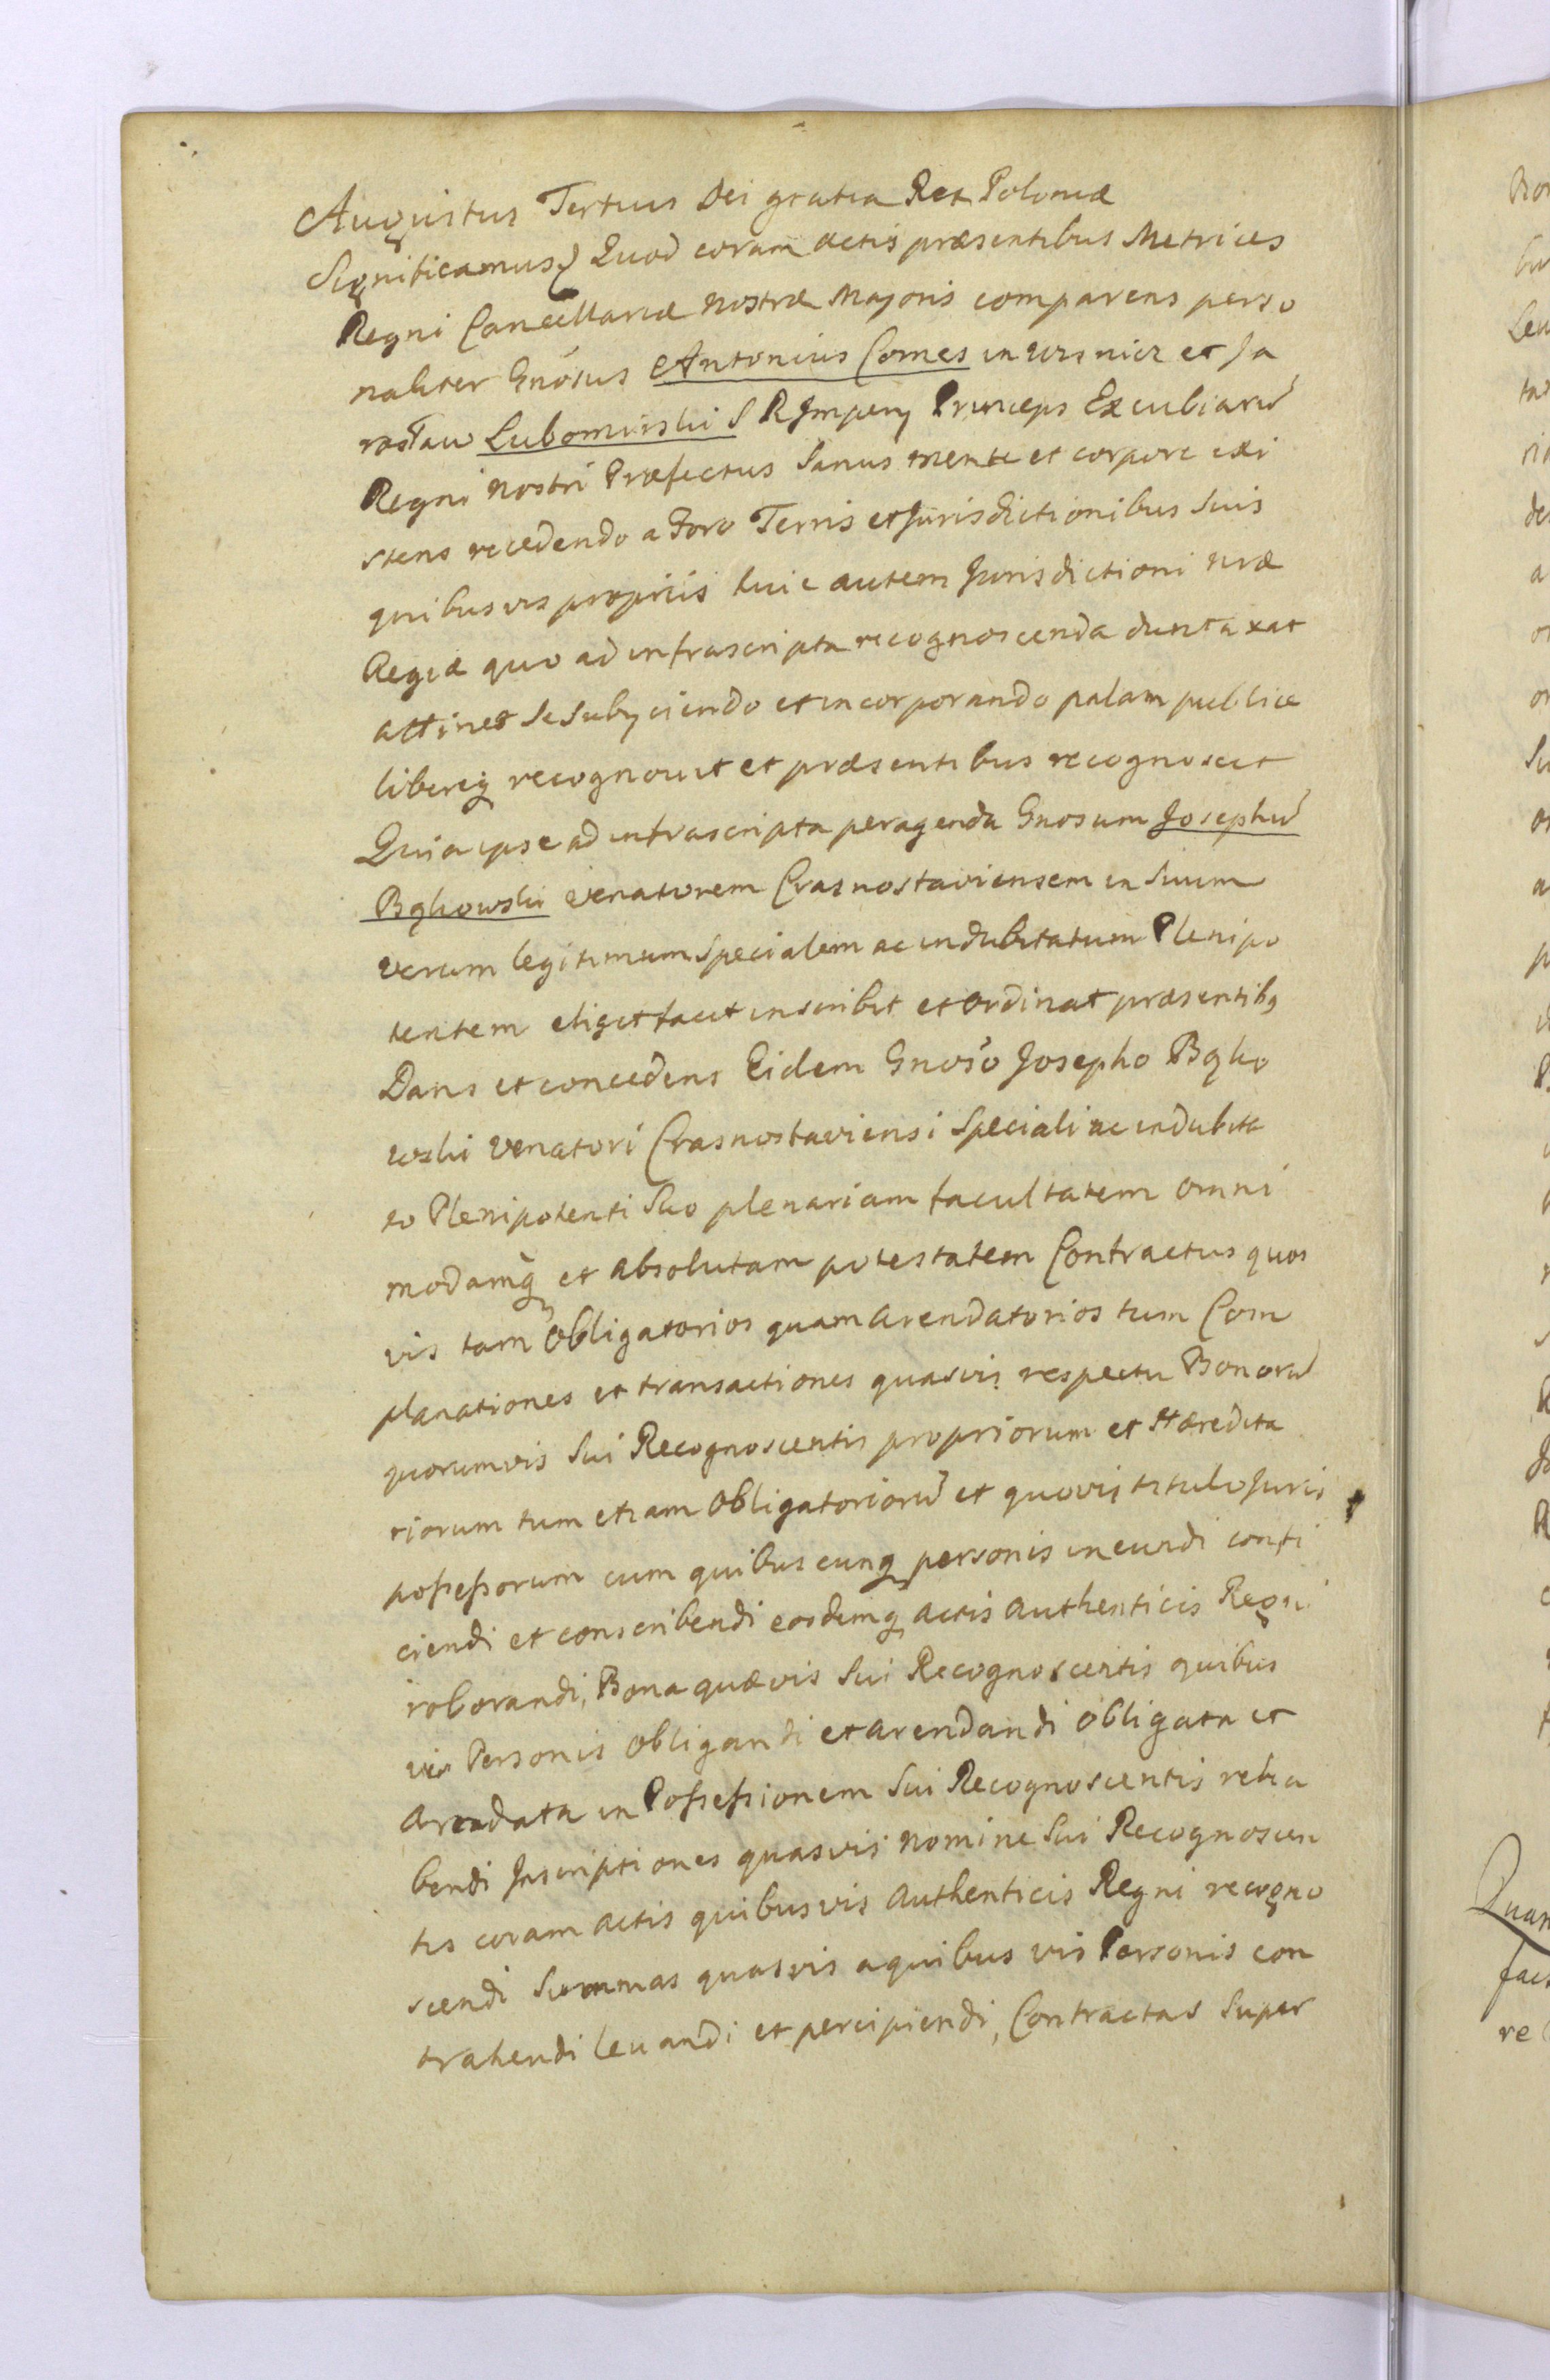 Augustus Tertius Dei gratia Rex Poloniæ
Significamus Quod coram actis præsentibus Metrices
Regni Cancellariæ nostræ Majoris comparens perso
naliter Gnosus Antonius Comes in Wisnicz et Ja
rosław Lubomirski S R Imperij Princeps Excubiarũ
Regni nostri Præfectus Sanus mente et corpore exi
stens recedendo a Foro Terris et Jurisdictionibus Suis
quibusvis propriis huic autem Jurisdictioni nræ
Regiæ quo ad infrascripta recognoscenda duntaxat
attinet se subijciendo et incorporando palam publice
libereq recognovit et præsentibus recognoscit
Quia ipse ad infrascripta peragenda Gnosum Josephũ
Bąkowski Venatorem Crasnostaviensem in Suum
verum legitimum Specialem ac indubitatum Plenipo
tentem eligit facit inscribit et ordinat præsentibq
Dans et concedens Eidem Gnoso Josepho Bąko
wski Venatori Crasnostaviensi Speciali ac indubita
to Plenipotenti Suo plenariam facultatem omni
modamq et absolutam potestatem Contractus quos
vis tam Obligatorios quam arendatorios tum Com
planationes et transactiones quasvis respectu Bonorũ
quorumvis Sui Recognoscentis propriorum et Hæredita
riorum tum etiam Obligatoriorũ et quovis titulo Juris
possessorum cum quibuscunq personis ineundi confi
ciendi et conscribendi eosdemq actis authenticis Regni
roborandi, Bona quævis Sui Recognoscentis quibus
vis Personis obligandi et arendandi obligata et
arendata in Possessionem Sui Recognoscentis reha
bendi Inscriptiones quasvis nomine Sui Recognoscen
tis coram actis quibusvis authenticis Regni recogno
scendi Summas quasvis a quibus vis Personis con
trahendi levandi et percipiendi, Contractas Super